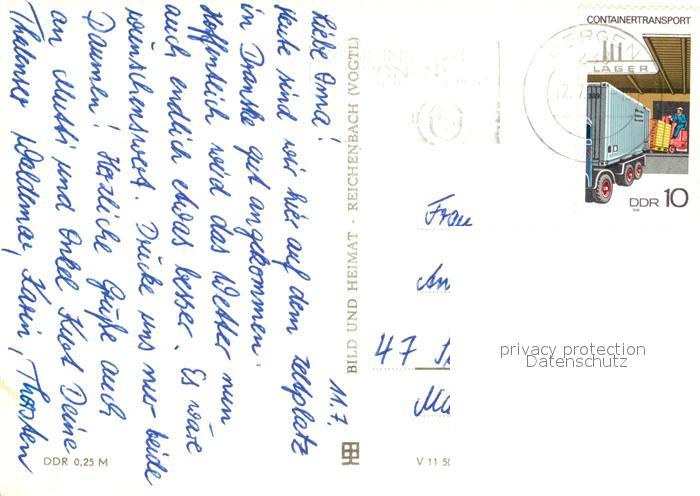 11.7.
Liebe Oma!
Heute sind wir hier auf dem Zeltplatz
in Dranske gut angekommen.
Hoffentlich wird das Wetter nun
auch endlich etwas besser. Es wäre
wünschenswert. Drücke uns nur beide
Daumen! Herzliche Grüße auch
an Mutti und Onkel Kurt Deine
Thalenser Waldemar, Karin, Thorsten
DDR 0,25 M
BILD UND HEIMAT · REICHENBACH (VOGTL)
V 11 50
CONTAINERTRANSPORT
LAGER
DDR 10
BERGEN
Frau
47
privacy protection
Datenschutz